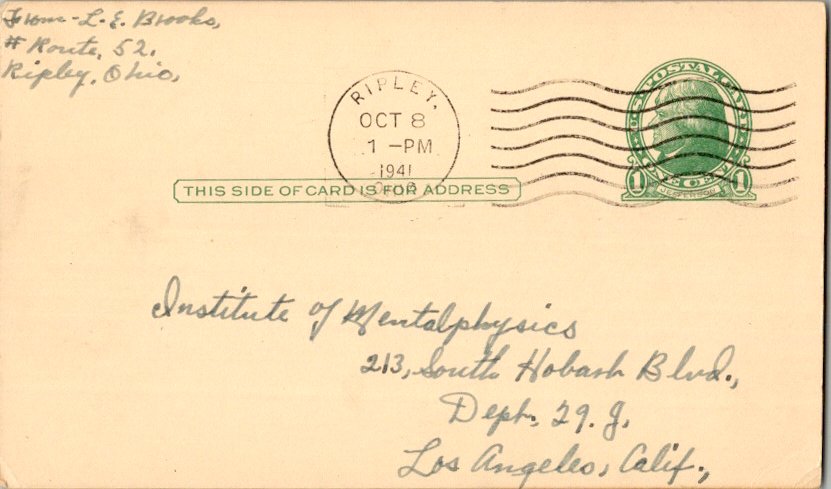 From - L. E. Brooks,
# Route, 52.
Ripley, Ohio,
RIPLEY,
OCT 8
1 - PM
1941
OHIO
U.S. POSTAL CARD
1 CENT 1
JEFFERSON
THIS SIDE OF CARD IS FOR ADDRESS
Institute of Mentalphysics
213, South Hobart Blvd.,
Dept, 29. J.
Los Angeles, Calif.,